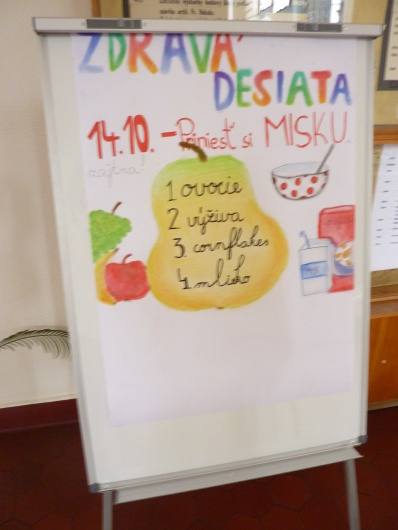 ZDRAVÁ
DESIATA
14.10. - Priniesť si MISKU.
zajtra!
1 ovocie
2 výživa
3. cornflakes
4. mlieko